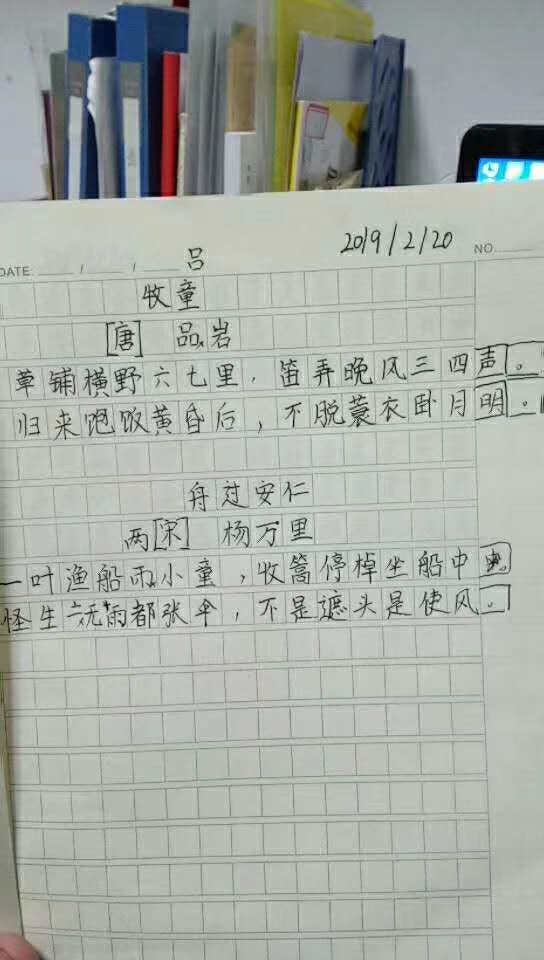 2019/2/20
DATE / / NO.
吕
牧童
[唐] 品岩
草铺横野六七里，笛弄晚风三四声。
归来饱饭黄昏后，不脱蓑衣卧月明。
舟过安仁
[宋] 杨万里
两
一叶渔船雨小童，收篙停棹坐船中。
怪生无雨都张伞，不是遮头是使风。